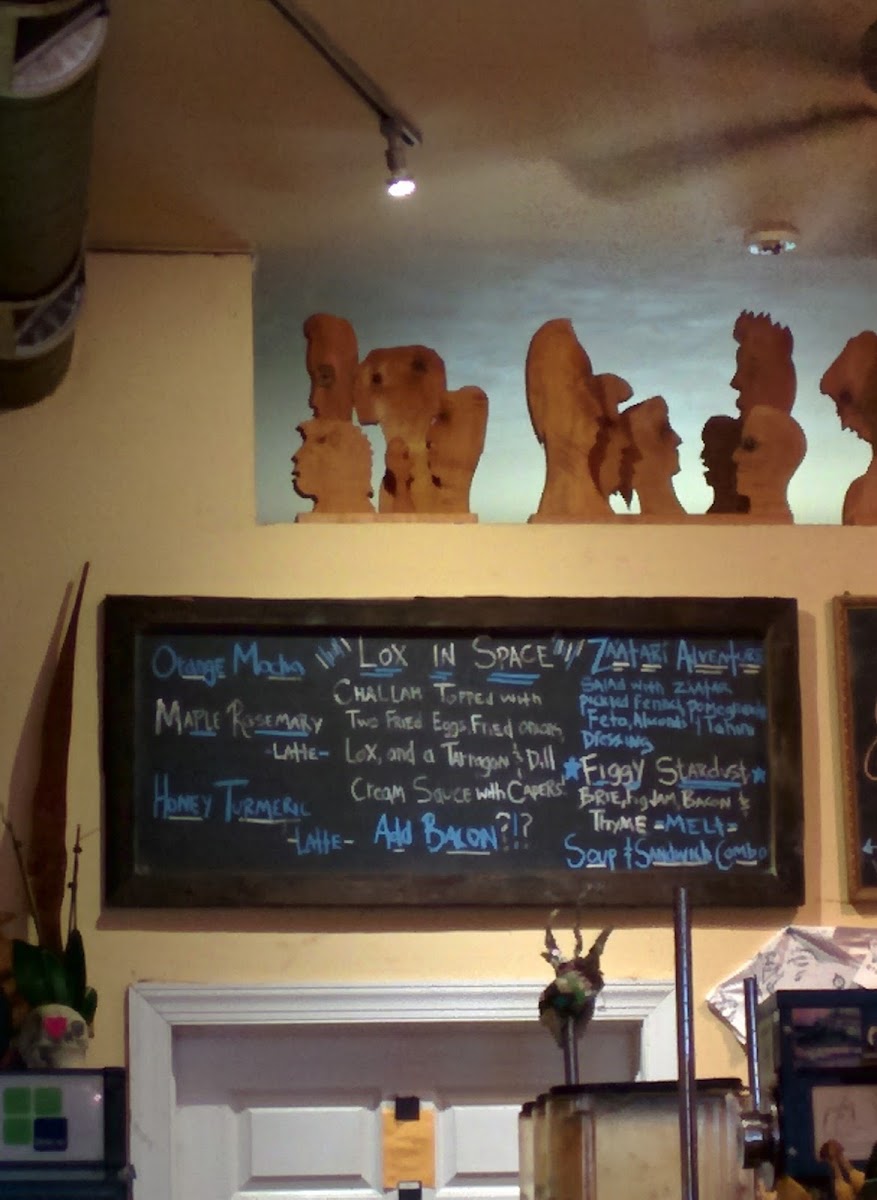 Orange Mocha
Maple Rosemary
-Latte-
Honey Turmeric
-Latte-
Lox in Space
Challah Topped with
Two Fried Eggs, Fried onions,
Lox, and a Tarragon & Dill
Cream Sauce with Capers!
Add Bacon?!?
Zaatari Adventure
Salad with Zaatar
Pickled Fennel, pomegranate
Feta, Almonds Tahini
Dressing
Figgy Stardust
Brie, Fig Jam, Bacon &
Thyme =Melt=
Soup & Sandwich Combo